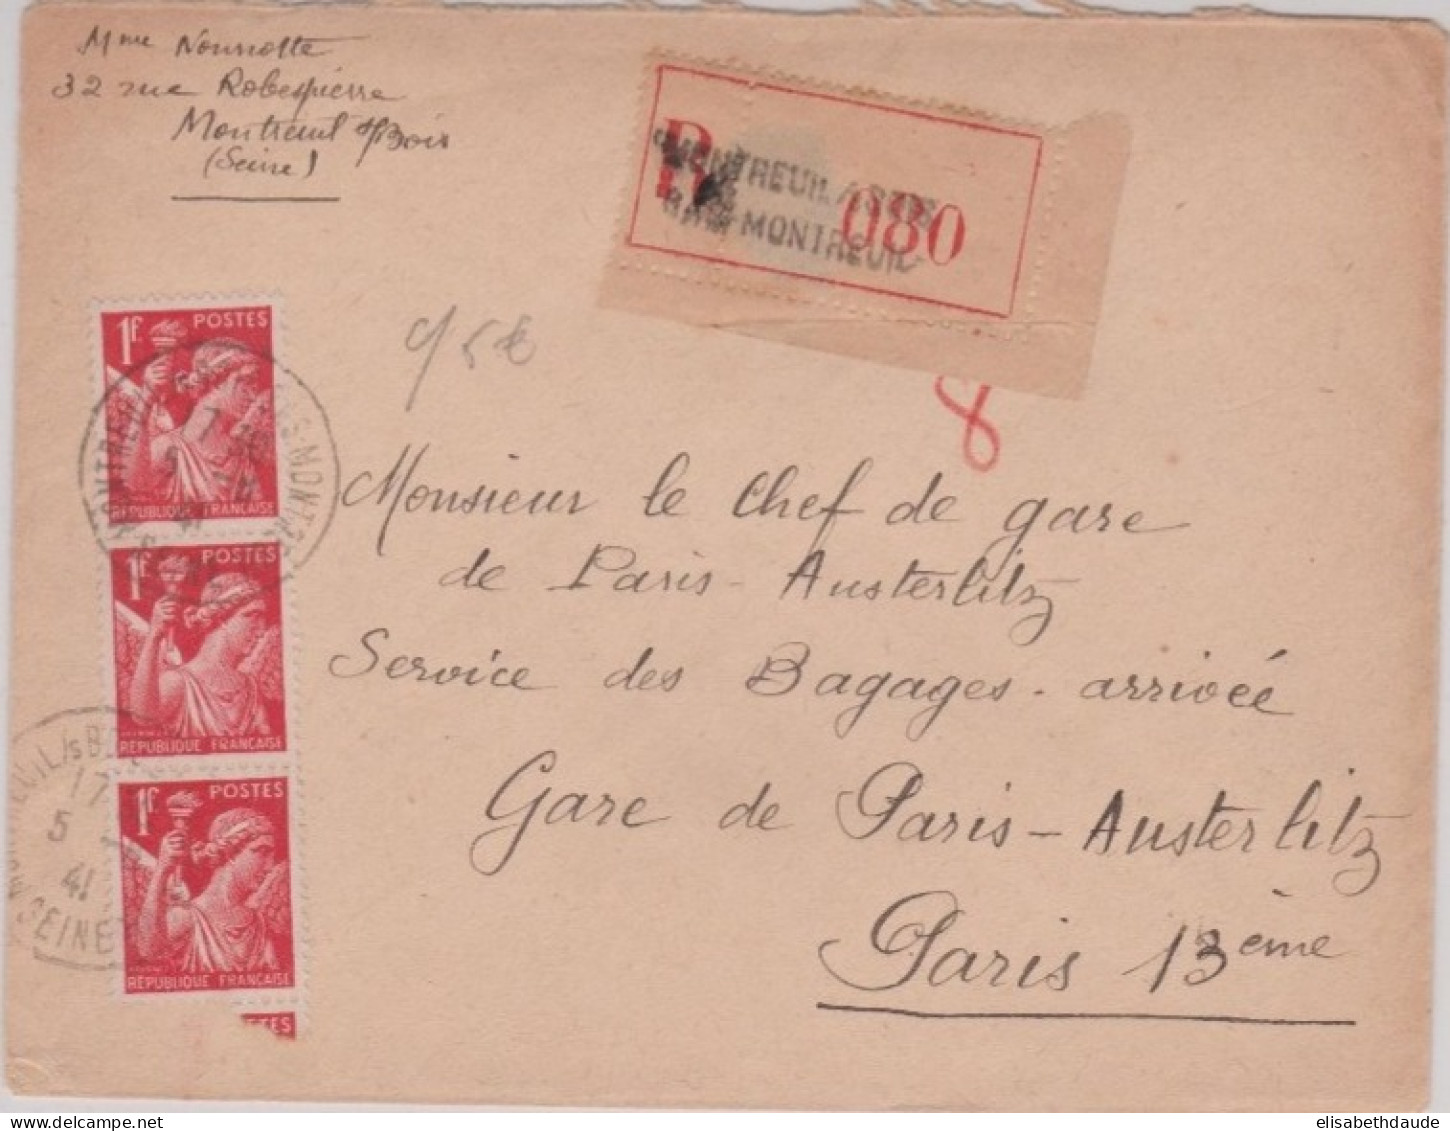 Mme Nourrotte
32 rue Robespierre
Montreuil s/Bois
(Seine)
R
MONTREUIL / S BOIS
BAS-MONTREUIL
080
8
1F. POSTES
RÉPUBLIQUE FRANÇAISE
1F. POSTES
RÉPUBLIQUE FRANÇAISE
1F POSTES
RÉPUBLIQUE FRANÇAISE
TES
17
5
41
SEINE
Monsieur le Chef de gare
de Paris-Austerlitz
Service des Bagages-arrivée
Gare de Paris-Austerlitz
Paris 13ème
elisabethdaude